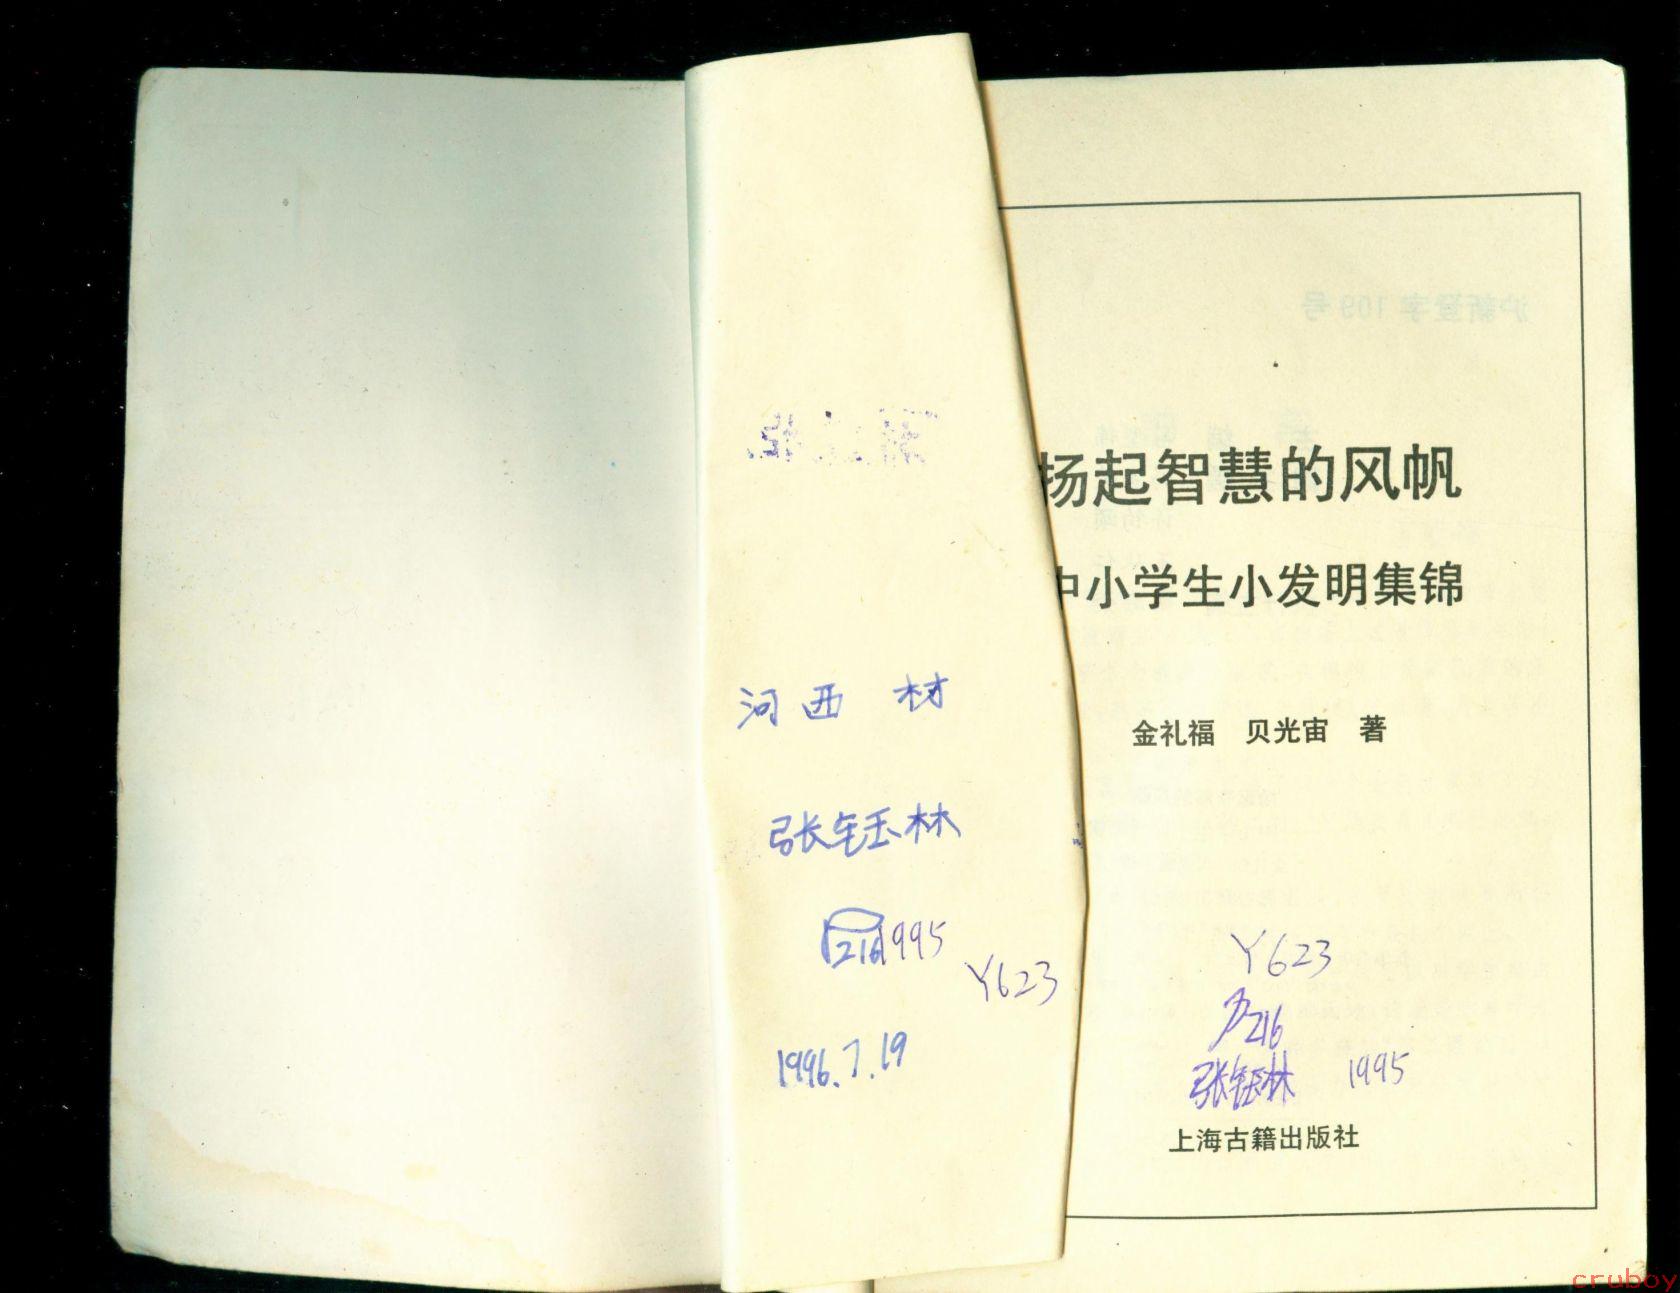 河西 村
张钰林
216 1995
Y623
1996.7.19
扬起智慧的风帆
中小学生小发明集锦
金礼福 贝光宙 著
Y623
216
张钰林 1995
上海古籍出版社
沪新登字 109 号
cruboy